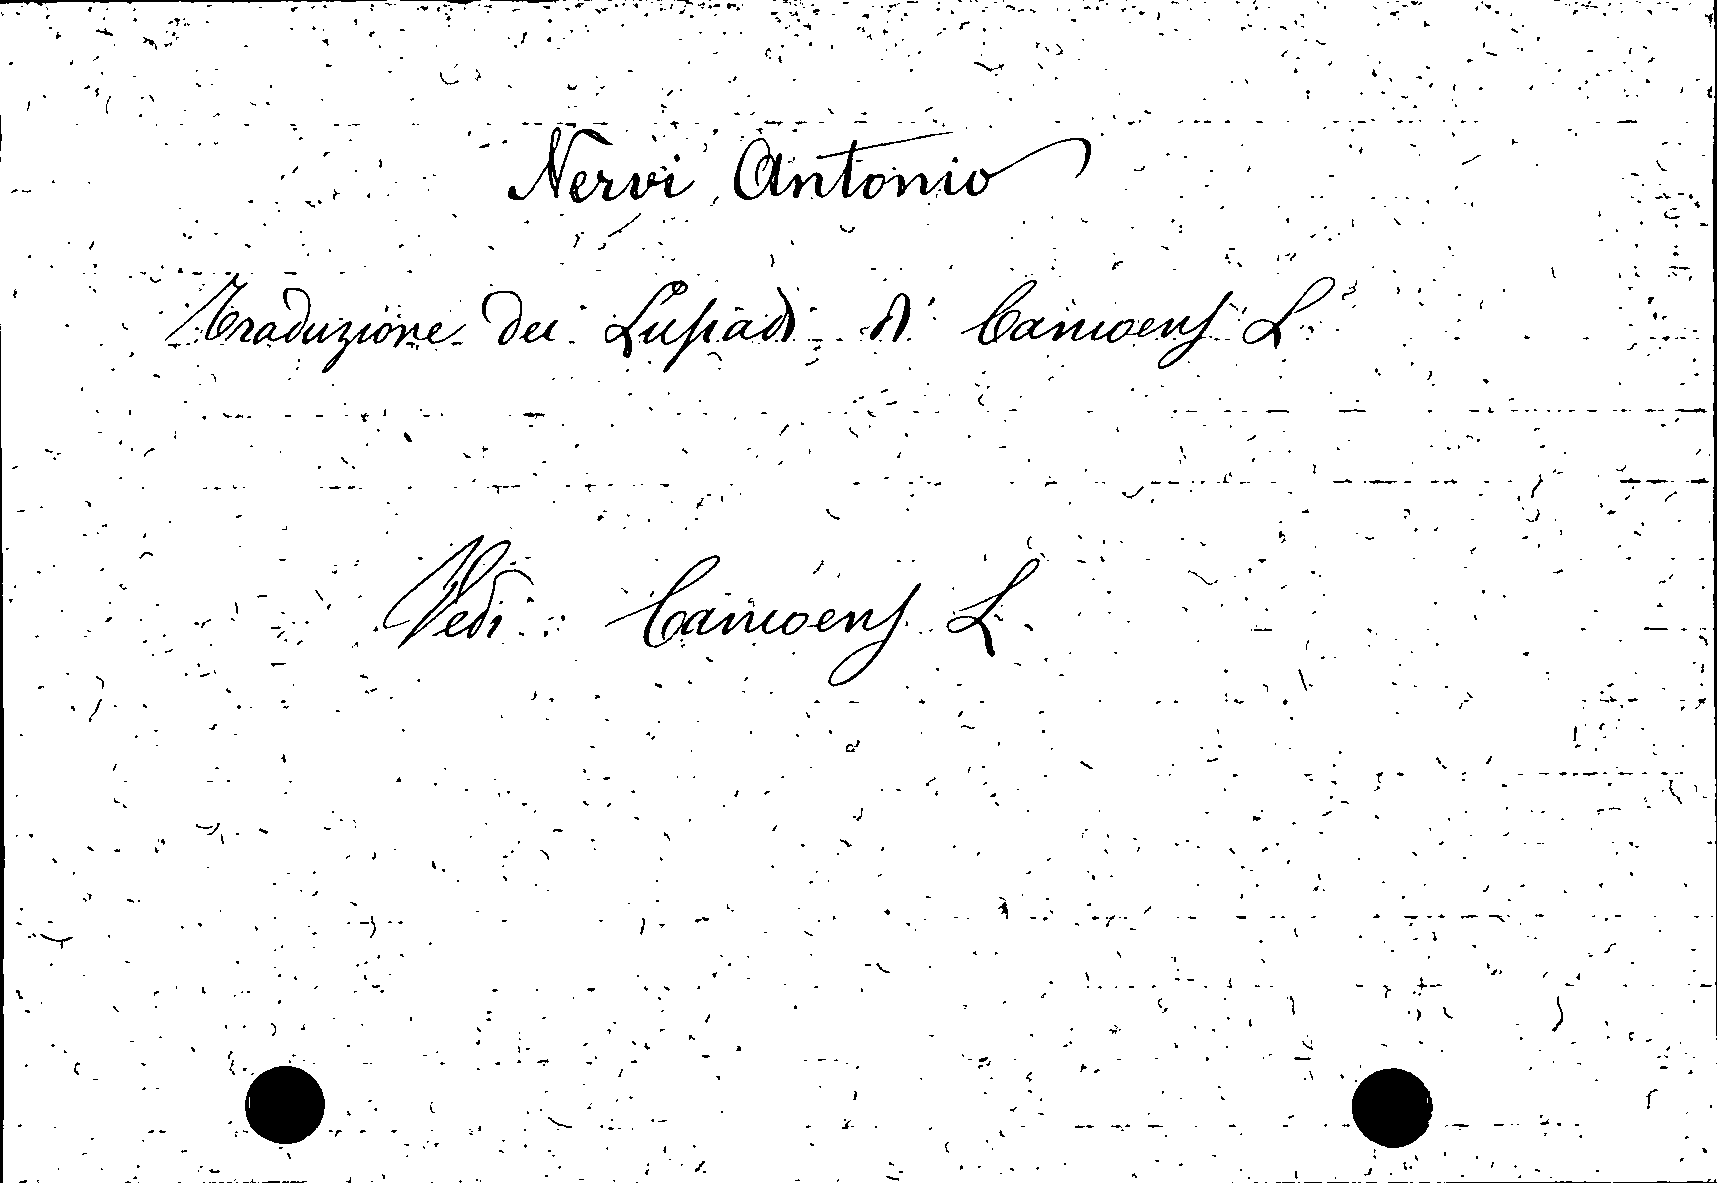 Nervi Antonio
Traduzione dei Lusiadi di Camoens L.
Vedi: Camoens L.